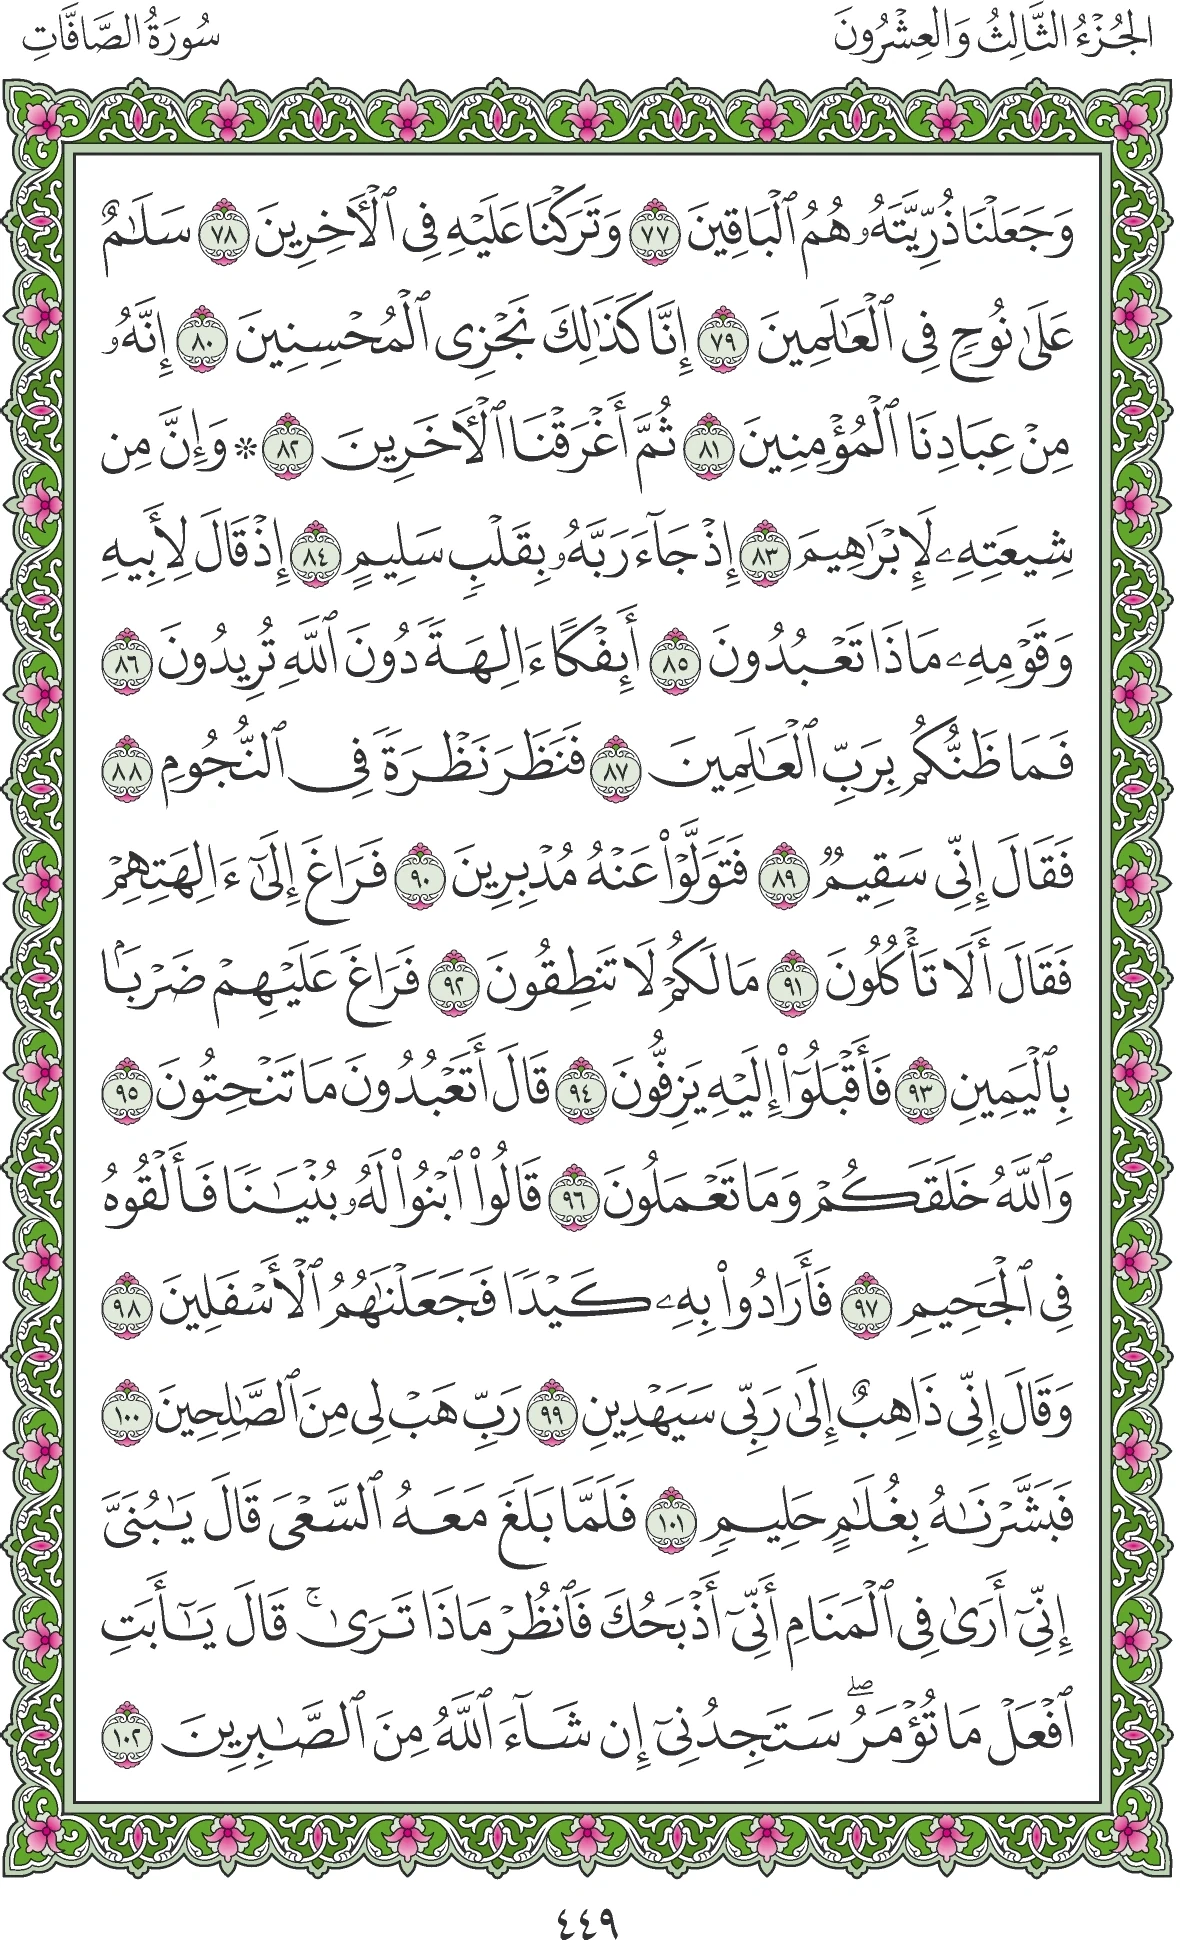 الجُزْءُ الثَّالِثُ وَالعِشْرُونَ
سُورَةُ الصَّافَّاتِ
وَجَعَلْنَا ذُرِّيَّتَهُۥ هُمُ ٱلْبَاقِينَ ٧٧ وَتَرَكْنَا عَلَيْهِ فِى ٱلْأَخِرِينَ ٧٨ سَلَٰمٌ
عَلَىٰ نُوحٍ فِى ٱلْعَٰلَمِينَ ٧٩ إِنَّا كَذَٰلِكَ نَجْزِى ٱلْمُحْسِنِينَ ٨٠ إِنَّهُۥ
مِنْ عِبَادِنَا ٱلْمُؤْمِنِينَ ٨١ ثُمَّ أَغْرَقْنَا ٱلْأَخَرِينَ ٨٢ * وَإِنَّ مِن
شِيعَتِهِۦ لَإِبْرَٰهِيمَ ٨٣ إِذْ جَآءَ رَبَّهُۥ بِقَلْبٍ سَلِيمٍ ٨٤ إِذْ قَالَ لِأَبِيهِ
وَقَوْمِهِۦ مَاذَا تَعْبُدُونَ ٨٥ أَئِفْكًا ءَالِهَةً دُونَ ٱللَّهِ تُرِيدُونَ ٨٦
فَمَا ظَنُّكُم بِرَبِّ ٱلْعَٰلَمِينَ ٨٧ فَنَظَرَ نَظْرَةً فِى ٱلنُّجُومِ ٨٨
فَقَالَ إِنِّى سَقِيمٌ ٨٩ فَتَوَلَّوْا۟ عَنْهُ مُدْبِرِينَ ٩٠ فَرَاغَ إِلَىٰٓ ءَالِهَتِهِمْ
فَقَالَ أَلَا تَأْكُلُونَ ٩١ مَا لَكُمْ لَا تَنطِقُونَ ٩٢ فَرَاغَ عَلَيْهِمْ ضَرْبًۢا
بِٱلْيَمِينِ ٩٣ فَأَقْبَلُوٓا۟ إِلَيْهِ يَزِفُّونَ ٩٤ قَالَ أَتَعْبُدُونَ مَا تَنْحِتُونَ ٩٥
وَٱللَّهُ خَلَقَكُمْ وَمَا تَعْمَلُونَ ٩٦ قَالُوا۟ ٱبْنُوا۟ لَهُۥ بُنْيَٰنًا فَأَلْقُوهُ
فِى ٱلْجَحِيمِ ٩٧ فَأَرَادُوا۟ بِهِۦ كَيْدًا فَجَعَلْنَٰهُمُ ٱلْأَسْفَلِينَ ٩٨
وَقَالَ إِنِّى ذَاهِبٌ إِلَىٰ رَبِّى سَيَهْدِينِ ٩٩ رَبِّ هَبْ لِى مِنَ ٱلصَّٰلِحِينَ ١٠٠
فَبَشَّرْنَٰهُ بِغُلَٰمٍ حَلِيمٍ ١٠١ فَلَمَّا بَلَغَ مَعَهُ ٱلسَّعْىَ قَالَ يَٰبُنَىَّ
إِنِّىٓ أَرَىٰ فِى ٱلْمَنَامِ أَنِّىٓ أَذْبَحُكَ فَٱنظُرْ مَاذَا تَرَىٰ ۚ قَالَ يَٰٓأَبَتِ
ٱفْعَلْ مَا تُؤْمَرُ ۖ سَتَجِدُنِىٓ إِن شَآءَ ٱللَّهُ مِنَ ٱلصَّٰبِرِينَ ١٠٢
٤٤٩